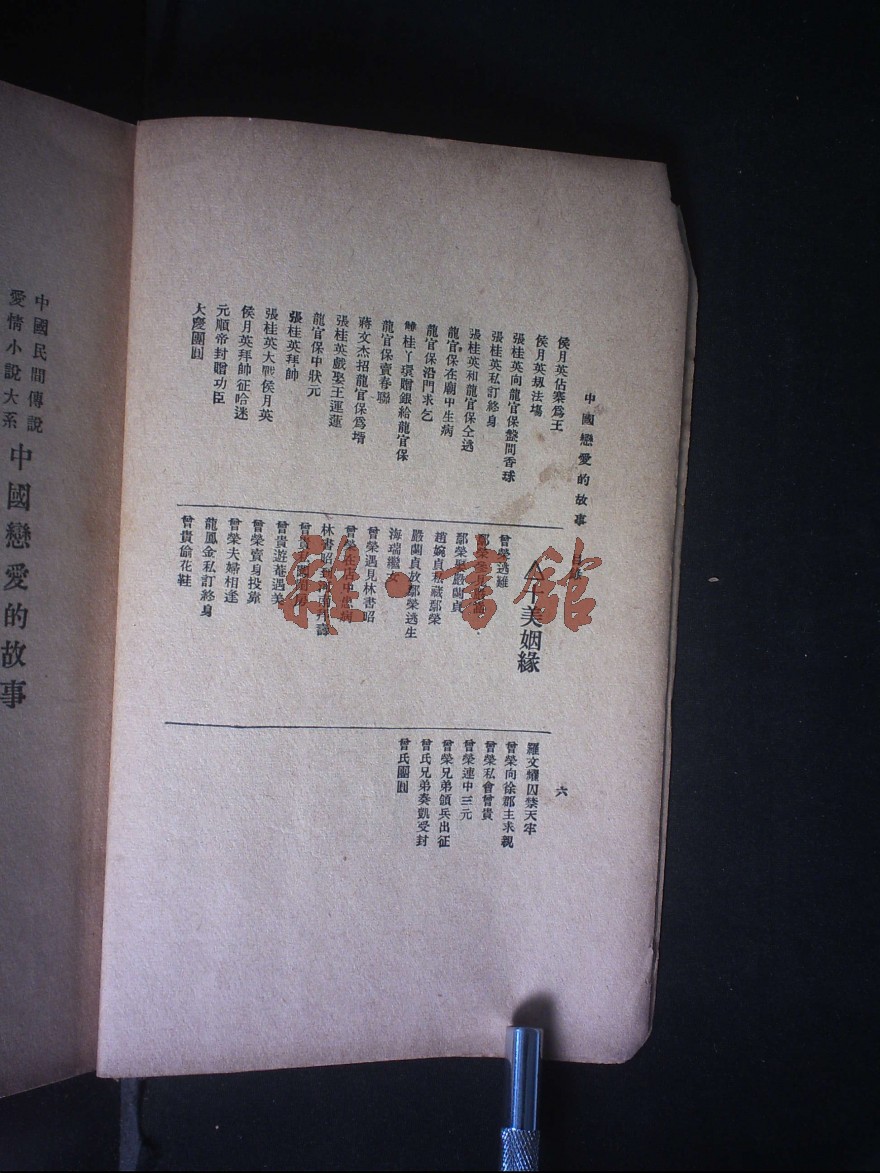 中國戀愛的故事
侯月英佔寨爲王
侯月英規法塲
張桂英向龍官保盤問香球
張桂英私訂終身
張桂英和龍官保仝逃
龍官保在廟中生病
龍官保沿門求乞
桂丫環贈銀給龍官保
龍官保賣春聯
蔣文杰招龍官保爲壻
張桂英戲娶王運蓮
龍官保中狀元
張桂英拜帥
張桂英大戰侯月英
侯月英拜帥征哈迷
元順帝封贈功臣
大慶團圓
美姻緣
曾榮逃難
鄢榮聚嚴蘭貞
趙婉貞私藏鄢榮
嚴蘭貞放鄢榮逃生
海瑞繼女
曾榮遇見林書昭
曾榮在店中患病
林書昭
曾貴
曾貴遊菴遇美
曾榮賣身投靠
曾榮夫婦相逢
龍鳳金私訂終身
曾貴偷花鞋
六
羅文耀囚禁天牢
曾榮向徐郡主求親
曾榮私會曾貴
曾榮連中三元
曾榮兄弟領兵出征
曾氏兄弟奏凱受封
曾氏團圓
中國民間傳說
愛情小說大系
中國戀愛的故事
雜·書館